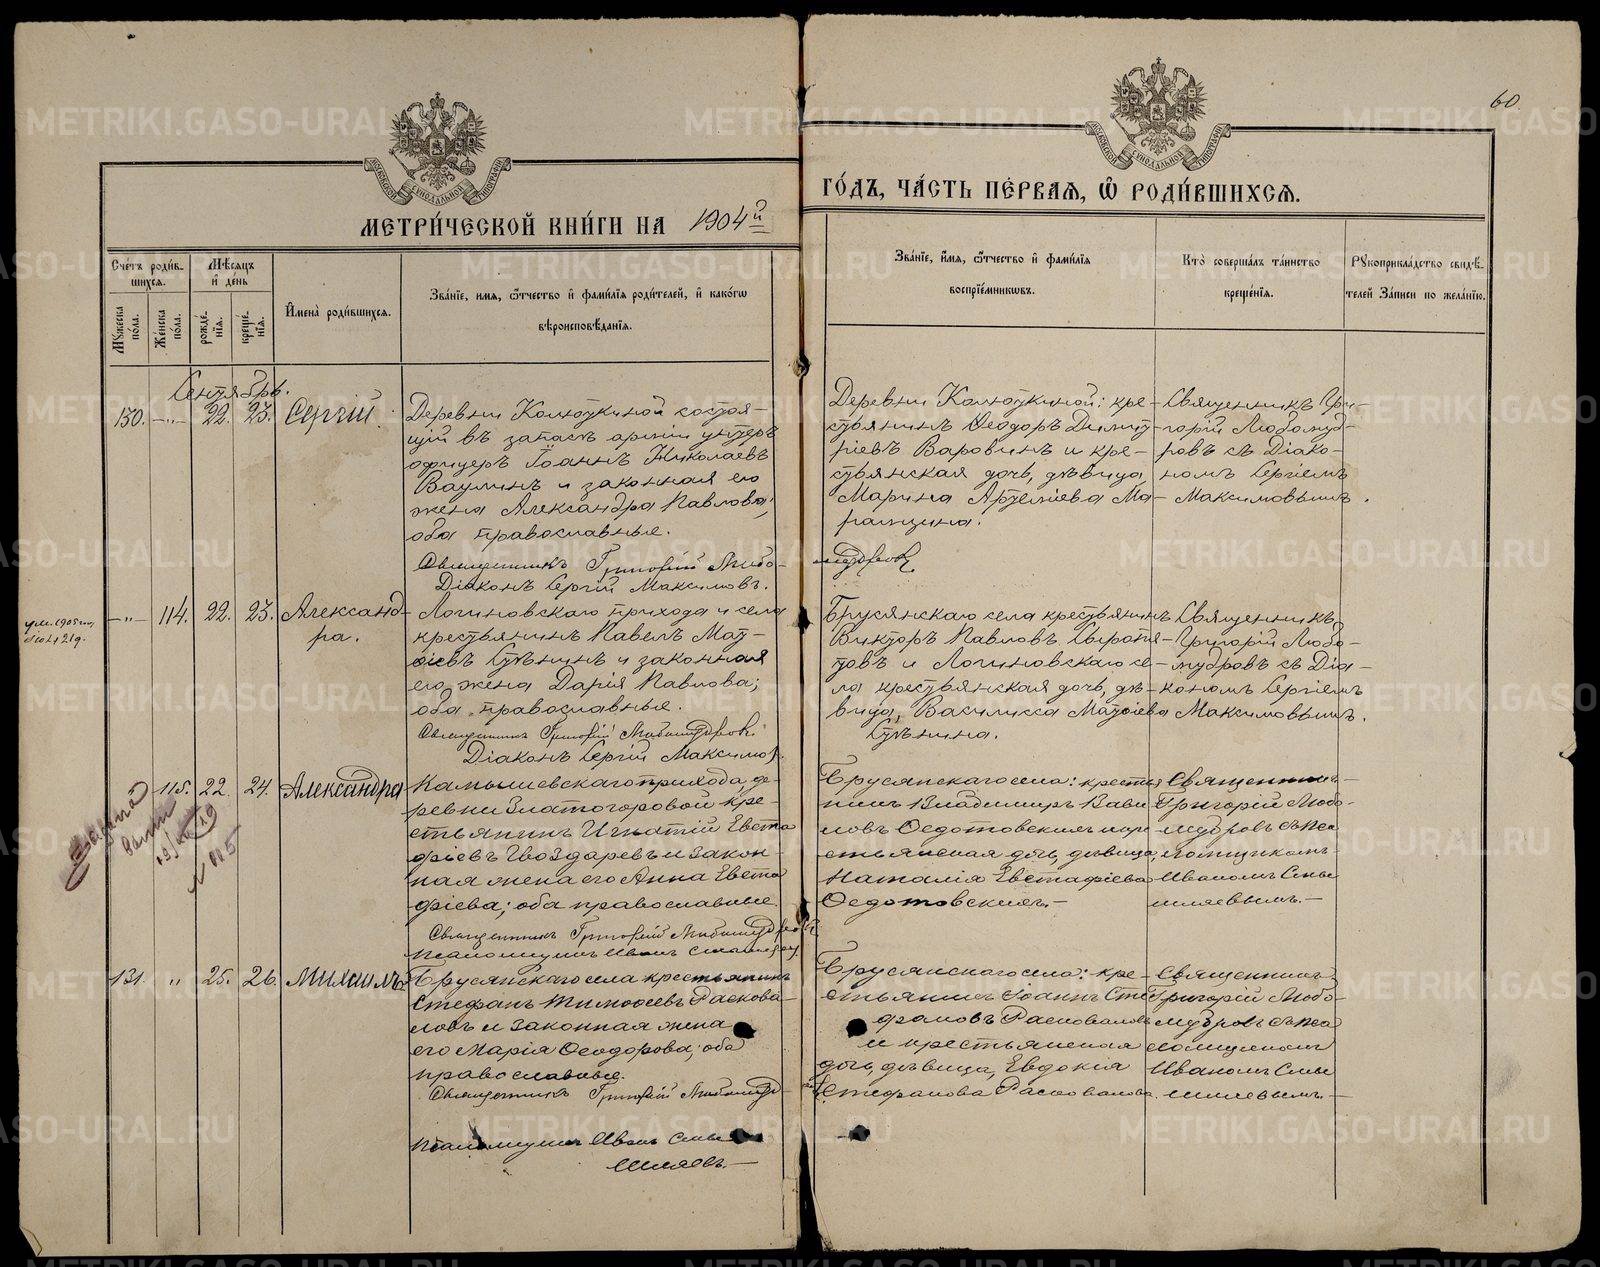 60
МЕТРИ́ЧЕСКОЙ КНИ́ГИ НА 1904й
ГО́ДЪ, ЧА́СТЬ ПЕ́РВАЯ, Ѡ РОДИ́ВШИХСЯ.
Сче́тъ роди́в-
шихся.
Мѣ́сяцъ
и де́нь
Му́жеска
по́ла.
Же́нска
по́ла.
рожде́-
нїя.
креще́-
нїя.
И҆мена̀ роди́вшихся.
Зва́нїе, имя, ѻ҆́тчество и҆ фами́лїя роди́телей, и҆ како́гѡ
вѣроисповѣ́данїя.
Зва́нїе, и҆́мя, ѻ҆́тчество и҆ фами́лїя
воспрїе́мниковъ.
Кто̀ соверша́лъ та́инство
креще́нїя.
Рꙋкоприкла́дство свидѣ́-
телей за́писи по жела́нїю.
Сентябрь.
130. —„— 22. 23. Сергій.
Деревни Колюткиной состоя-
щій въ запасѣ арміи унтеръ
офицеръ Іоаннъ Николаевъ
Ваулинъ и законная его
жена Александра Павлова;
оба православные.
Священникъ Григорій Любо-
мудровъ
Діаконъ Сергій Максимовъ.
Деревни Колюткиной: кре-
стьянинъ Ѳеодоръ Димит-
ріевъ Варовинъ и кре-
стьянская дочь, дѣвица,
Марина Артеміева Ма-
Священникъ Гри-
горій Любомуд-
ровъ съ Діако-
номъ Сергіемъ
Максимовымъ.
ум. 1905 г.
—„— 114. 22. 23. Александ-
ра.
Логиновскаго прихода и села
крестьянинъ Павелъ Мат-
ѳіевъ и законная
его жена Дарія Павлова;
оба православные.
Священникъ Григорій Любомудровъ.
Діаконъ Сергій Максимов.
Брусянскаго села крестьянинъ
Викторъ Павловъ
и Логиновскаго се-
ла крестьянская дочь, дѣ-
вица, Василисса Матѳіева
Священникъ
Григорій Любо-
мудровъ съ Діа-
кономъ Сергіемъ
Максимовымъ.
№ 115
115. 22. 24. Александра
Камышевскаго прихода, де-
ревни Златогоровой кре-
стьянинъ Игнатій Евста
фіевъ Гвоздаревъ и закон-
ная жена его Анна Евста
фіева; оба православные.
Священникъ Григорій Любомудровъ
Псаломщикъ Иванъ Смышляевъ
Брусянскаго села: крестья
нинъ Владиміръ Вави
ловъ Ѳедотовскихъ и кре
стьянская дочь, дѣвица,
Наталія Евстафіева
Ѳедотовскихъ.—
Священникъ
Григорій Любо-
мудровъ съ пса
ломщикомъ
Иваномъ Смы
шляевымъ.—
131. „ 25. 26. Михаилъ
Брусянскаго села крестьянинъ
Стефанъ Тимоѳеевъ Расковa-
ловъ и законная жена
его Марія Ѳеодорова; оба
православные.
Священникъ Григорій Любомудро-
въ
Псаломщикъ Иванъ Смы
шляевъ.—
Брусянскаго села: кре-
стьянинъ Іоаннъ Сте
фановъ Расковаловъ
и крестьянская
дочь, дѣвица, Евдокія
Стефанова Расковалова.
Священникъ
Григорій Любо-
мудровъ съ пса
ломщикомъ
Иваномъ Смы
шляевымъ.—
METRIKI.GASO-URAL.RU